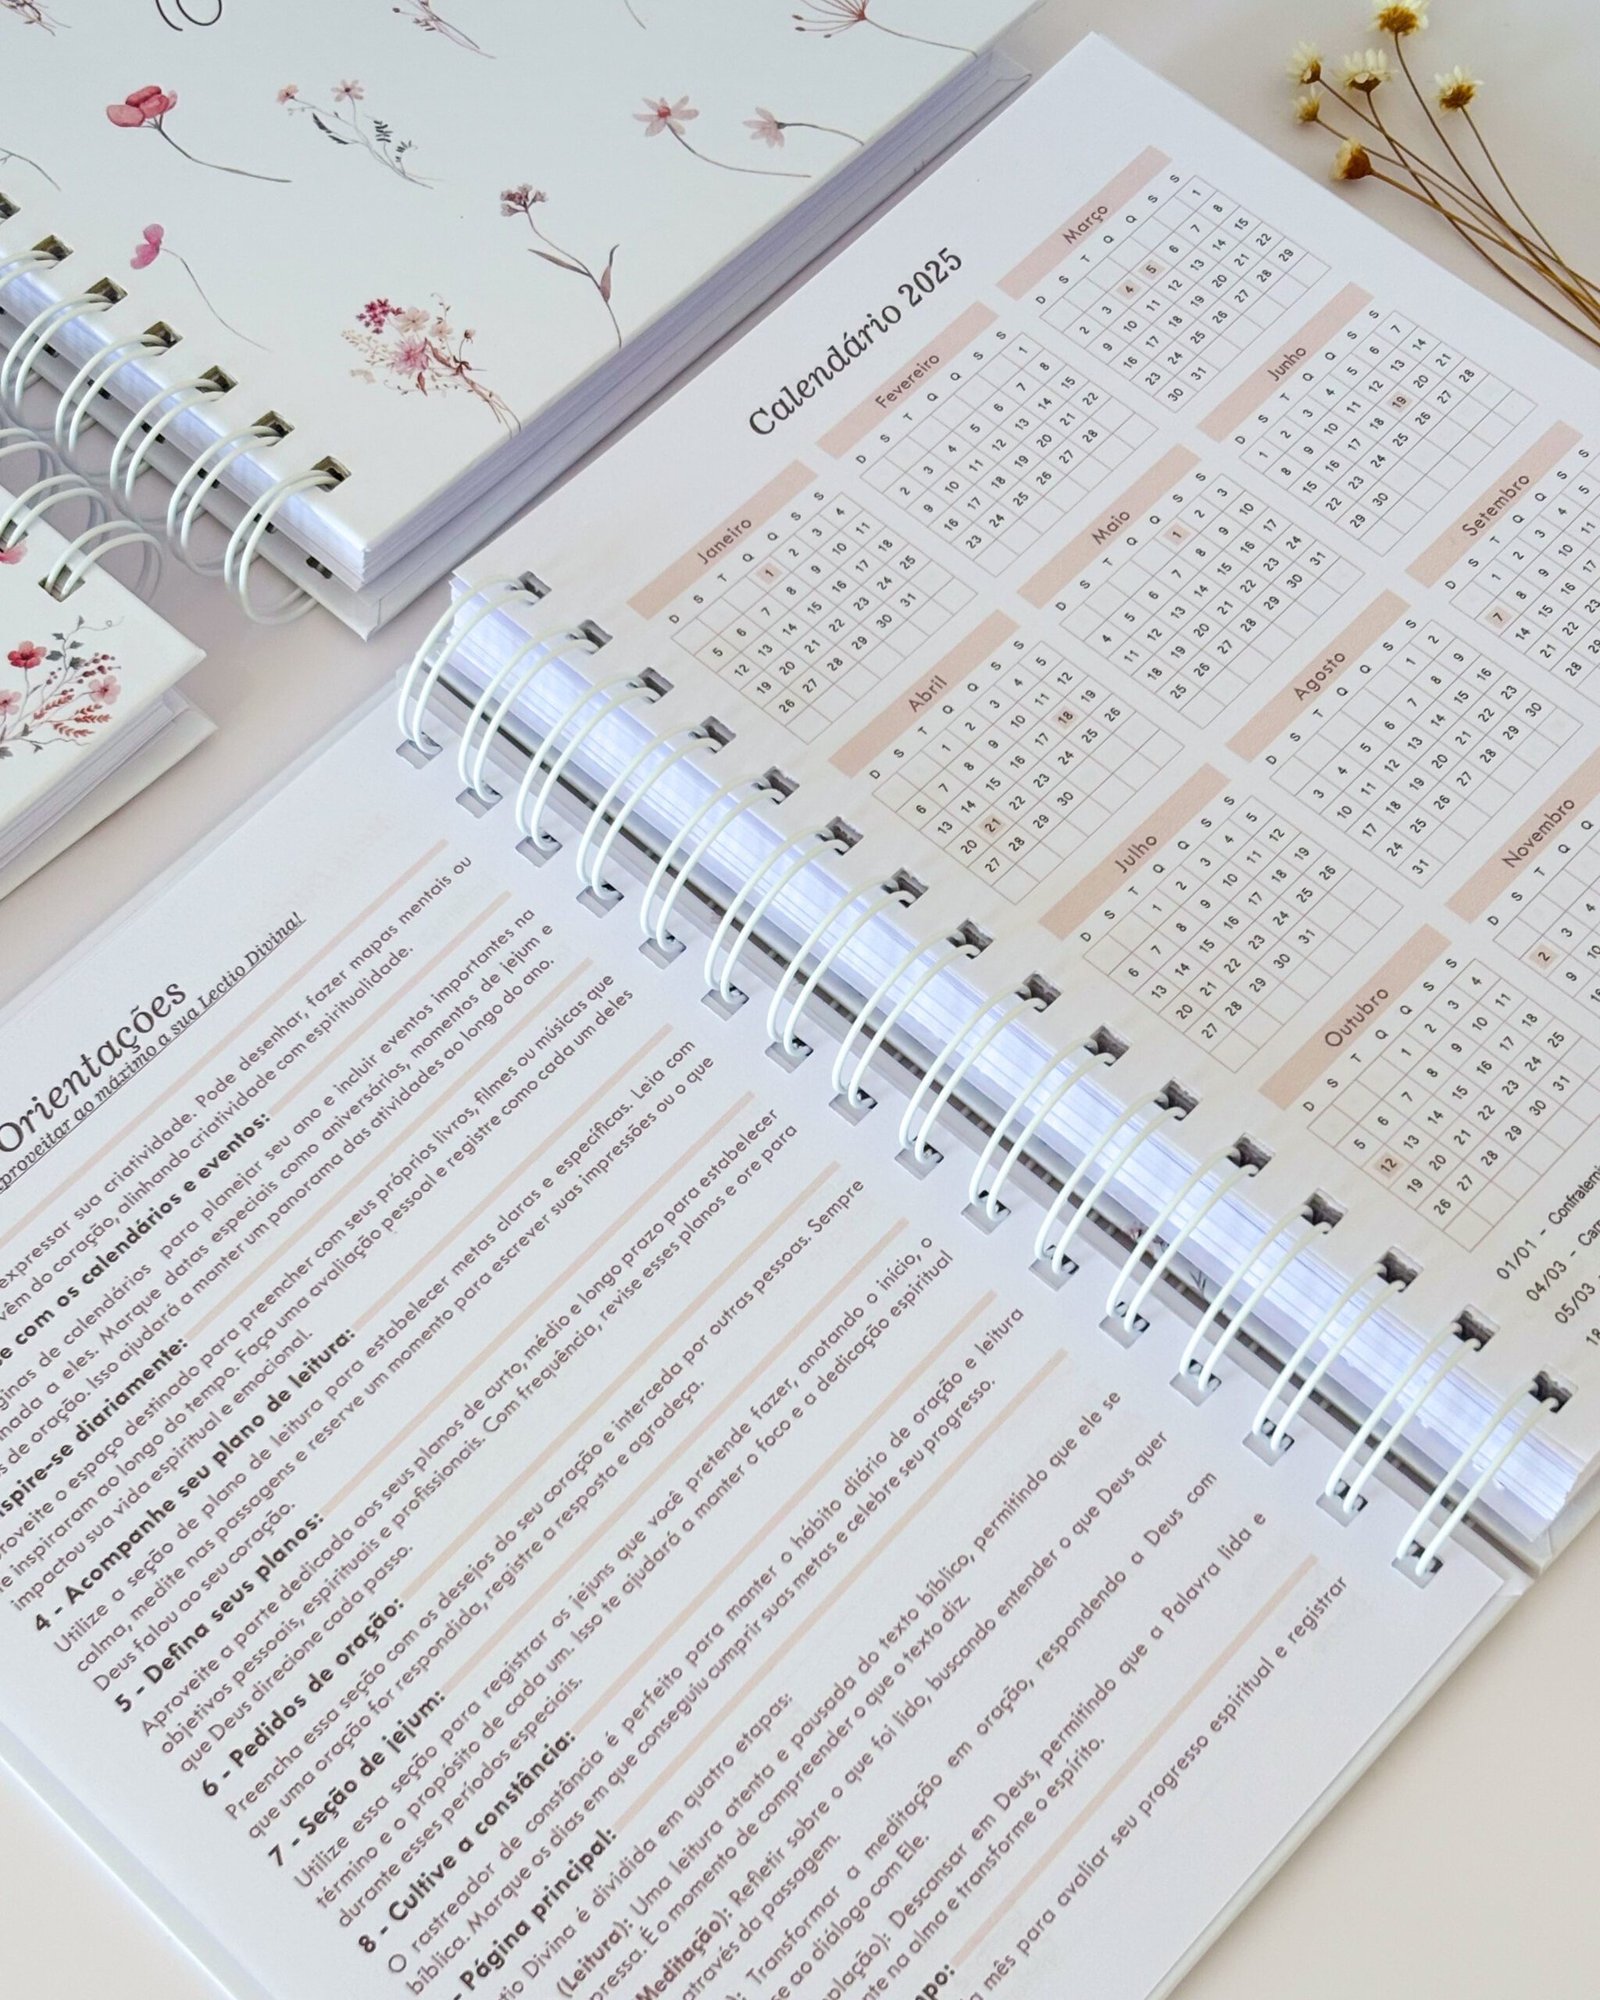 Orientações
aproveitar ao máximo a sua Lectio Divina!
expressar sua criatividade. Pode desenhar, fazer mapas mentais ou
vêm do coração, alinhando criatividade com espiritualidade.
com os calendários e eventos:
de calendários para planejar seu ano e incluir eventos importantes na
a eles. Marque datas especiais como aniversários, momentos de jejum e
de oração. Isso ajudará a manter um panorama das atividades ao longo do ano.
diariamente:
o espaço destinado para preencher com seus próprios livros, filmes ou músicas que
inspiraram ao longo do tempo. Faça uma avaliação pessoal e registre como cada um deles
impactou sua vida espiritual e emocional.
4 - Acompanhe seu plano de leitura:
Utilize a seção de plano de leitura para estabelecer metas claras e específicas. Leia com
calma, medite nas passagens e reserve um momento para escrever suas impressões ou o que
Deus falou ao seu coração.
5 - Defina seus planos:
Aproveite a parte dedicada aos seus planos de curto, médio e longo prazo para estabelecer
objetivos pessoais, espirituais e profissionais. Com frequência, revise esses planos e ore para
que Deus direcione cada passo.
6 - Pedidos de oração:
Preencha essa seção com os desejos do seu coração e interceda por outras pessoas. Sempre
que uma oração for respondida, registre a resposta e agradeça.
7 - Seção de jejum:
Utilize essa seção para registrar os jejuns que você pretende fazer, anotando o início, o
término e o propósito de cada um. Isso te ajudará a manter o foco e a dedicação espiritual
durante esses períodos especiais.
8 - Cultive a constância:
O rastreador de constância é perfeito para manter o hábito diário de oração e leitura
bíblica. Marque os dias em que conseguiu cumprir suas metas e celebre seu progresso.
- Página principal:
Divina é dividida em quatro etapas:
(Leitura): Uma leitura atenta e pausada do texto bíblico, permitindo que ele se
É o momento de compreender o que o texto diz.
Meditação): Refletir sobre o que foi lido, buscando entender o que Deus quer
através da passagem.
Transformar a meditação em oração, respondendo a Deus com
ao diálogo com Ele.
Descansar em Deus, permitindo que a Palavra lida e
na alma e transforme o espírito.
mês para avaliar seu progresso espiritual e registrar
Calendário 2025
Janeiro
D S T Q Q S S
1 2 3 4
5 6 7 8 9 10 11
12 13 14 15 16 17 18
19 20 21 22 23 24 25
26 27 28 29 30 31
Fevereiro
D S T Q Q S S
1
2 3 4 5 6 7 8
9 10 11 12 13 14 15
16 17 18 19 20 21 22
23 24 25 26 27 28
Março
D S T Q Q S S
1
2 3 4 5 6 7 8
9 10 11 12 13 14 15
16 17 18 19 20 21 22
23 24 25 26 27 28 29
30 31
Abril
D S T Q Q S S
1 2 3 4 5
6 7 8 9 10 11 12
13 14 15 16 17 18 19
20 21 22 23 24 25 26
27 28 29 30
Maio
D S T Q Q S S
1 2 3
4 5 6 7 8 9 10
11 12 13 14 15 16 17
18 19 20 21 22 23 24
25 26 27 28 29 30 31
Junho
D S T Q Q S S
1 2 3 4 5 6 7
8 9 10 11 12 13 14
15 16 17 18 19 20 21
22 23 24 25 26 27 28
29 30
Julho
D S T Q Q S S
1 2 3 4 5
6 7 8 9 10 11 12
13 14 15 16 17 18 19
20 21 22 23 24 25 26
27 28 29 30 31
Agosto
D S T Q Q S S
1 2
3 4 5 6 7 8 9
10 11 12 13 14 15 16
17 18 19 20 21 22 23
24 25 26 27 28 29 30
31
Setembro
D S T Q Q S
1 2 3 4 5
7 8 9 10 11
14 15 16 17
21 22 23
28 29
Outubro
D S T Q Q S S
1 2 3 4
5 6 7 8 9 10 11
12 13 14 15 16 17 18
19 20 21 22 23 24 25
26 27 28 29 30 31
Novembro
D S T Q
2 3 4
9 10
16
01/01 -
04/03 -
05/03